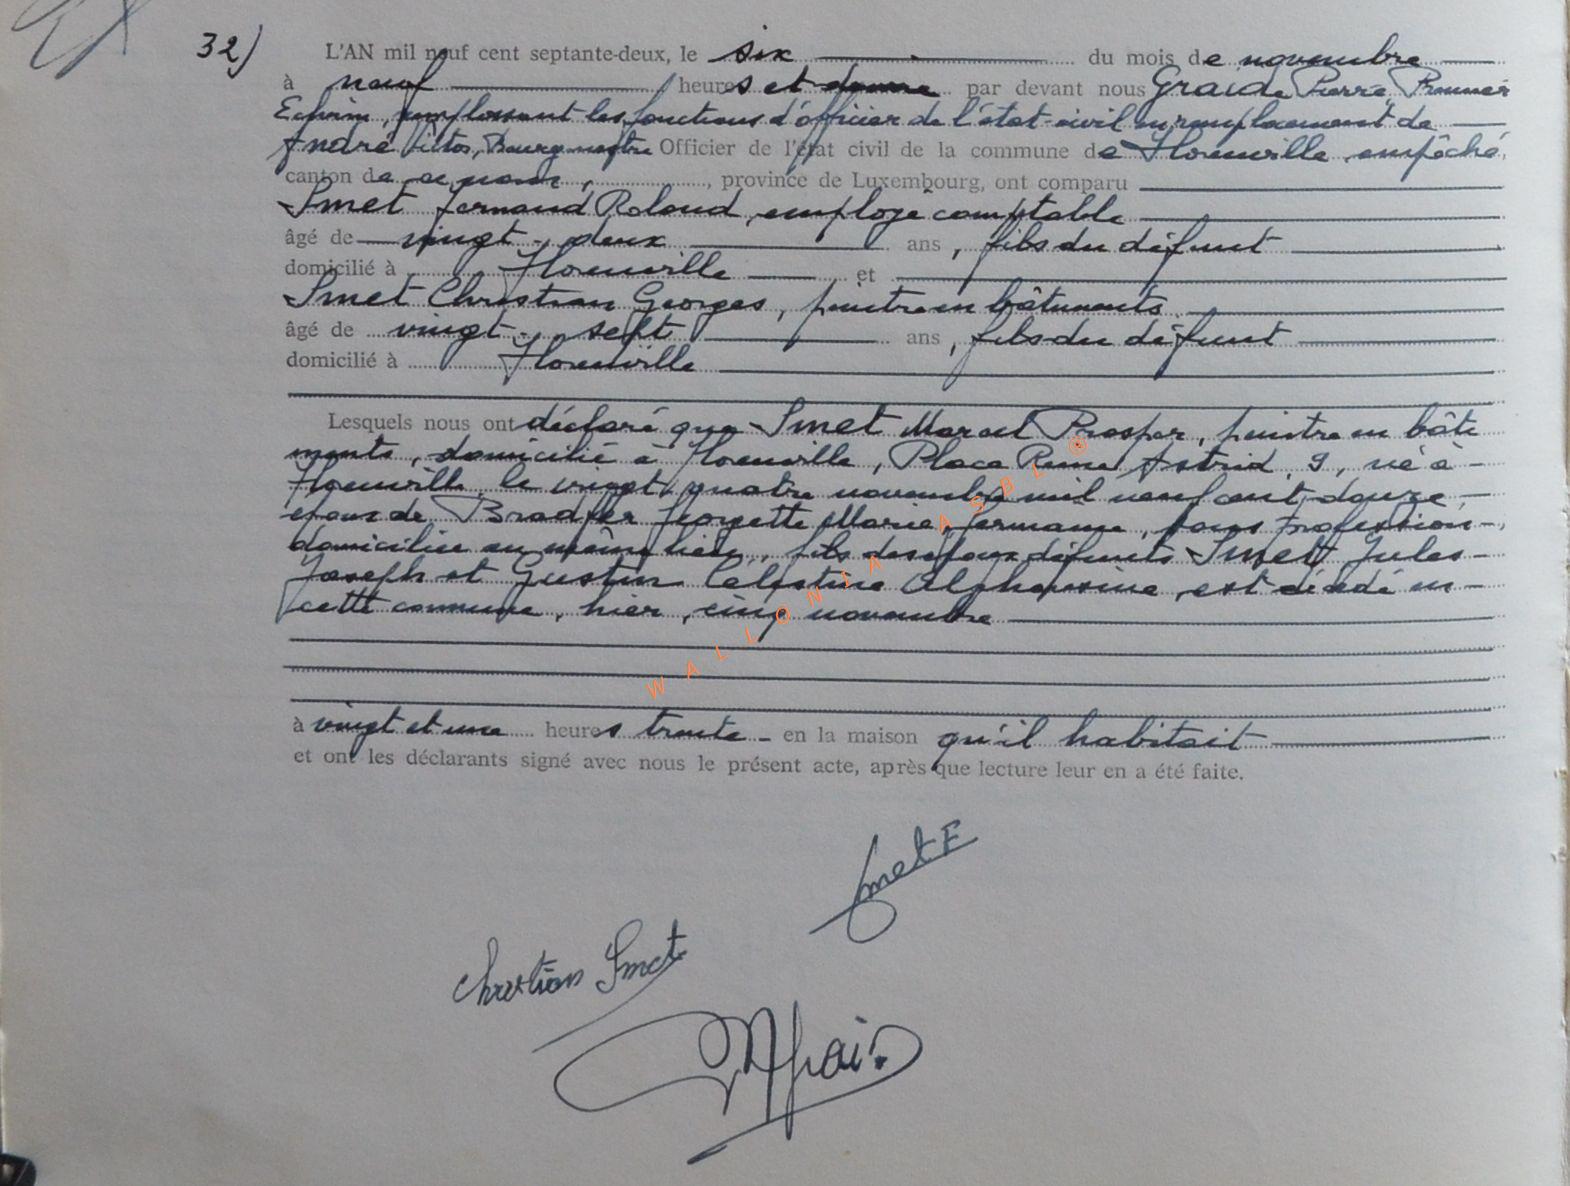 32)
L'AN mil neuf cent septante-deux, le six du mois de novembre
à neuf heures et demie par devant nous Graide Pierre, Premier
Echevin, remplissant les fonctions d'officier de l'état-civil en remplacement de
André Bourgmestre Officier de l'état civil de la commune de Florenville empêché,
canton de ce nom, province de Luxembourg, ont comparu
Smet Fernand Roland, employé comptable
âgé de vingt-deux ans, fils du défunt
domicilié à Florenville et
Smet Christian Georges, peintre en bâtiments
âgé de vingt-sept ans, fils du défunt
domicilié à Florenville
Lesquels nous ont déclaré que Smet Marcel Prosper, peintre en bâti
ments, domicilié à Florenville, Place Reine Astrid 9, né à
Florenville le vingt quatre novembre mil neuf cent douze
époux de Bradfer Georgette Marie Germaine, sans profession
domiciliée au même lieu, fils des époux défunts Smet Jules
Joseph et Gustin Célestine Alphonsine, est décédé en
cette commune, hier, cinq novembre
WALLONIA ASBL ®
à vingt et une heures trente en la maison qu'il habitait
et ont les déclarants signé avec nous le présent acte, après que lecture leur en a été faite.
Smet F
Christian Smet